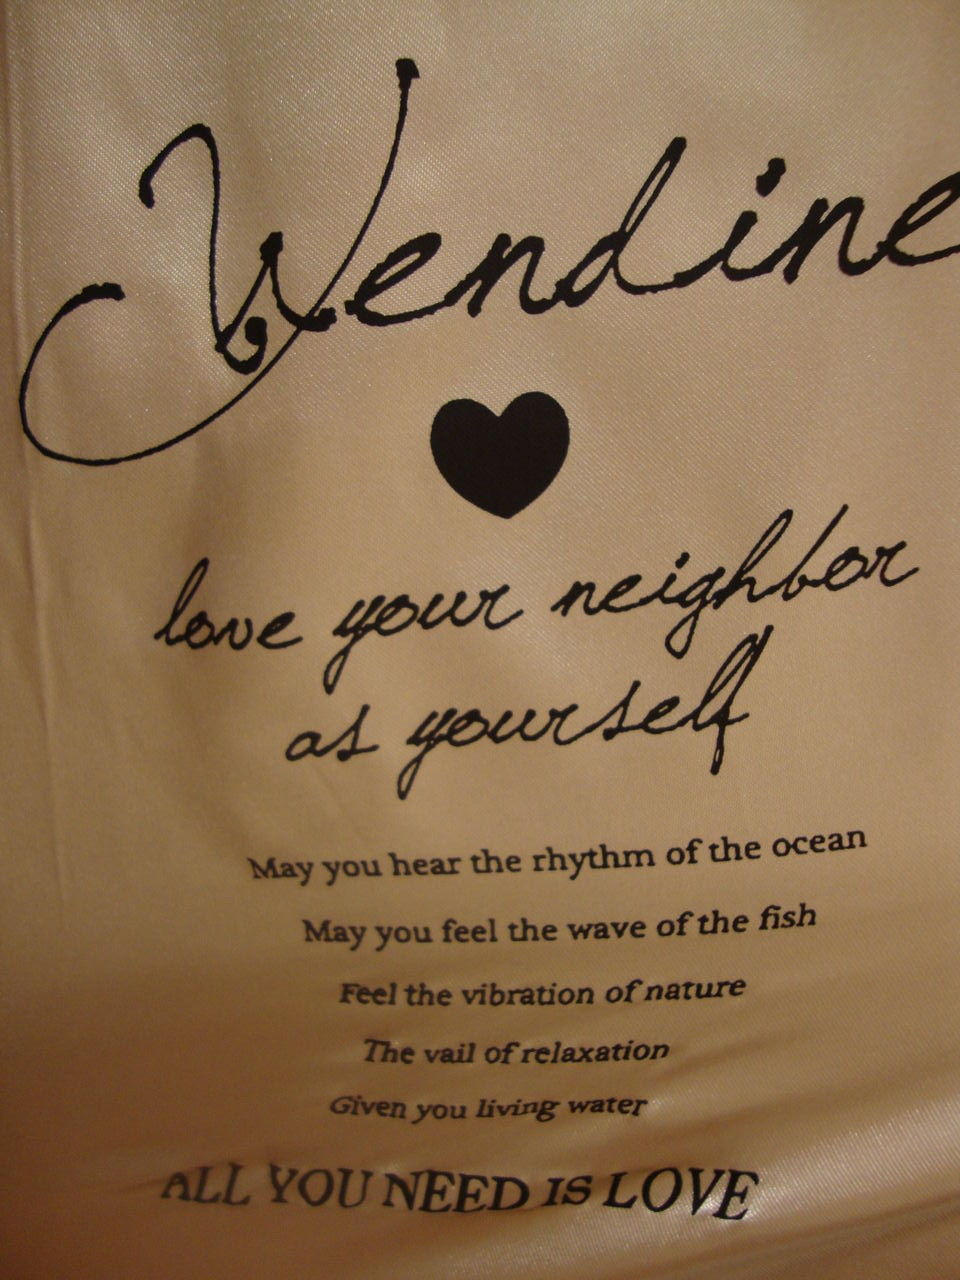 Wendine
love your neighbor
as yourself
May you hear the rhythm of the ocean
May you feel the wave of the fish
Feel the vibration of nature
The vail of relaxation
Given you living water
ALL YOU NEED IS LOVE